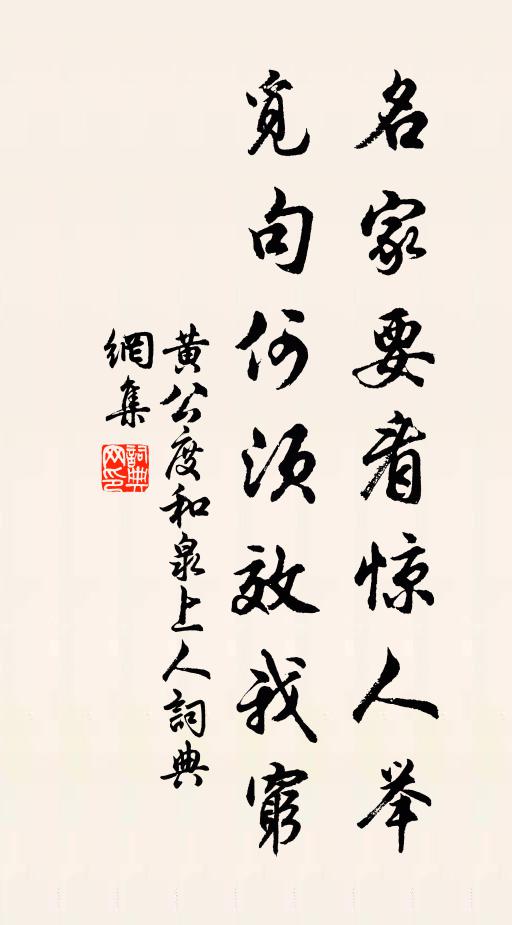 名家要看惊人举
觅句何须效我穷
黄公度和泉上人詞典
網集
詞典网印